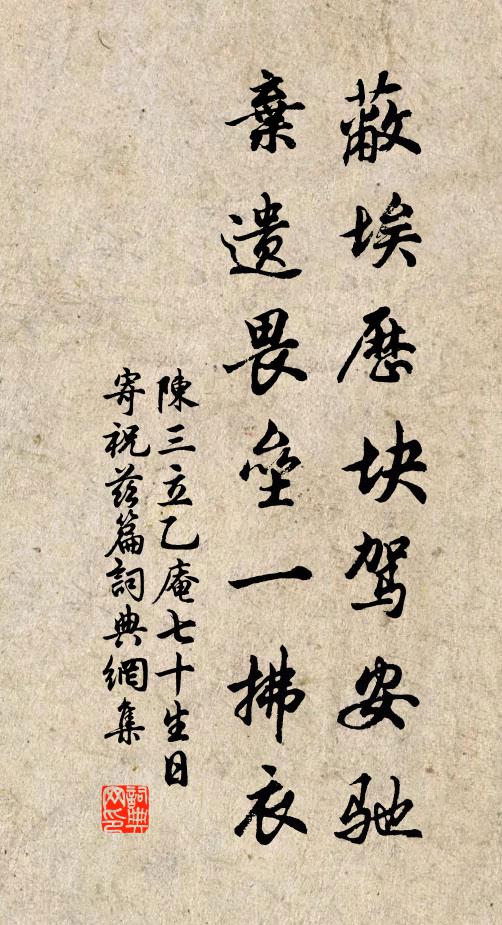 蔽埃歷块駕安馳
棄遺畏壘一拂衣
陳三立乙庵七十生日
寄祝茲篇詞典網集
詞典网印